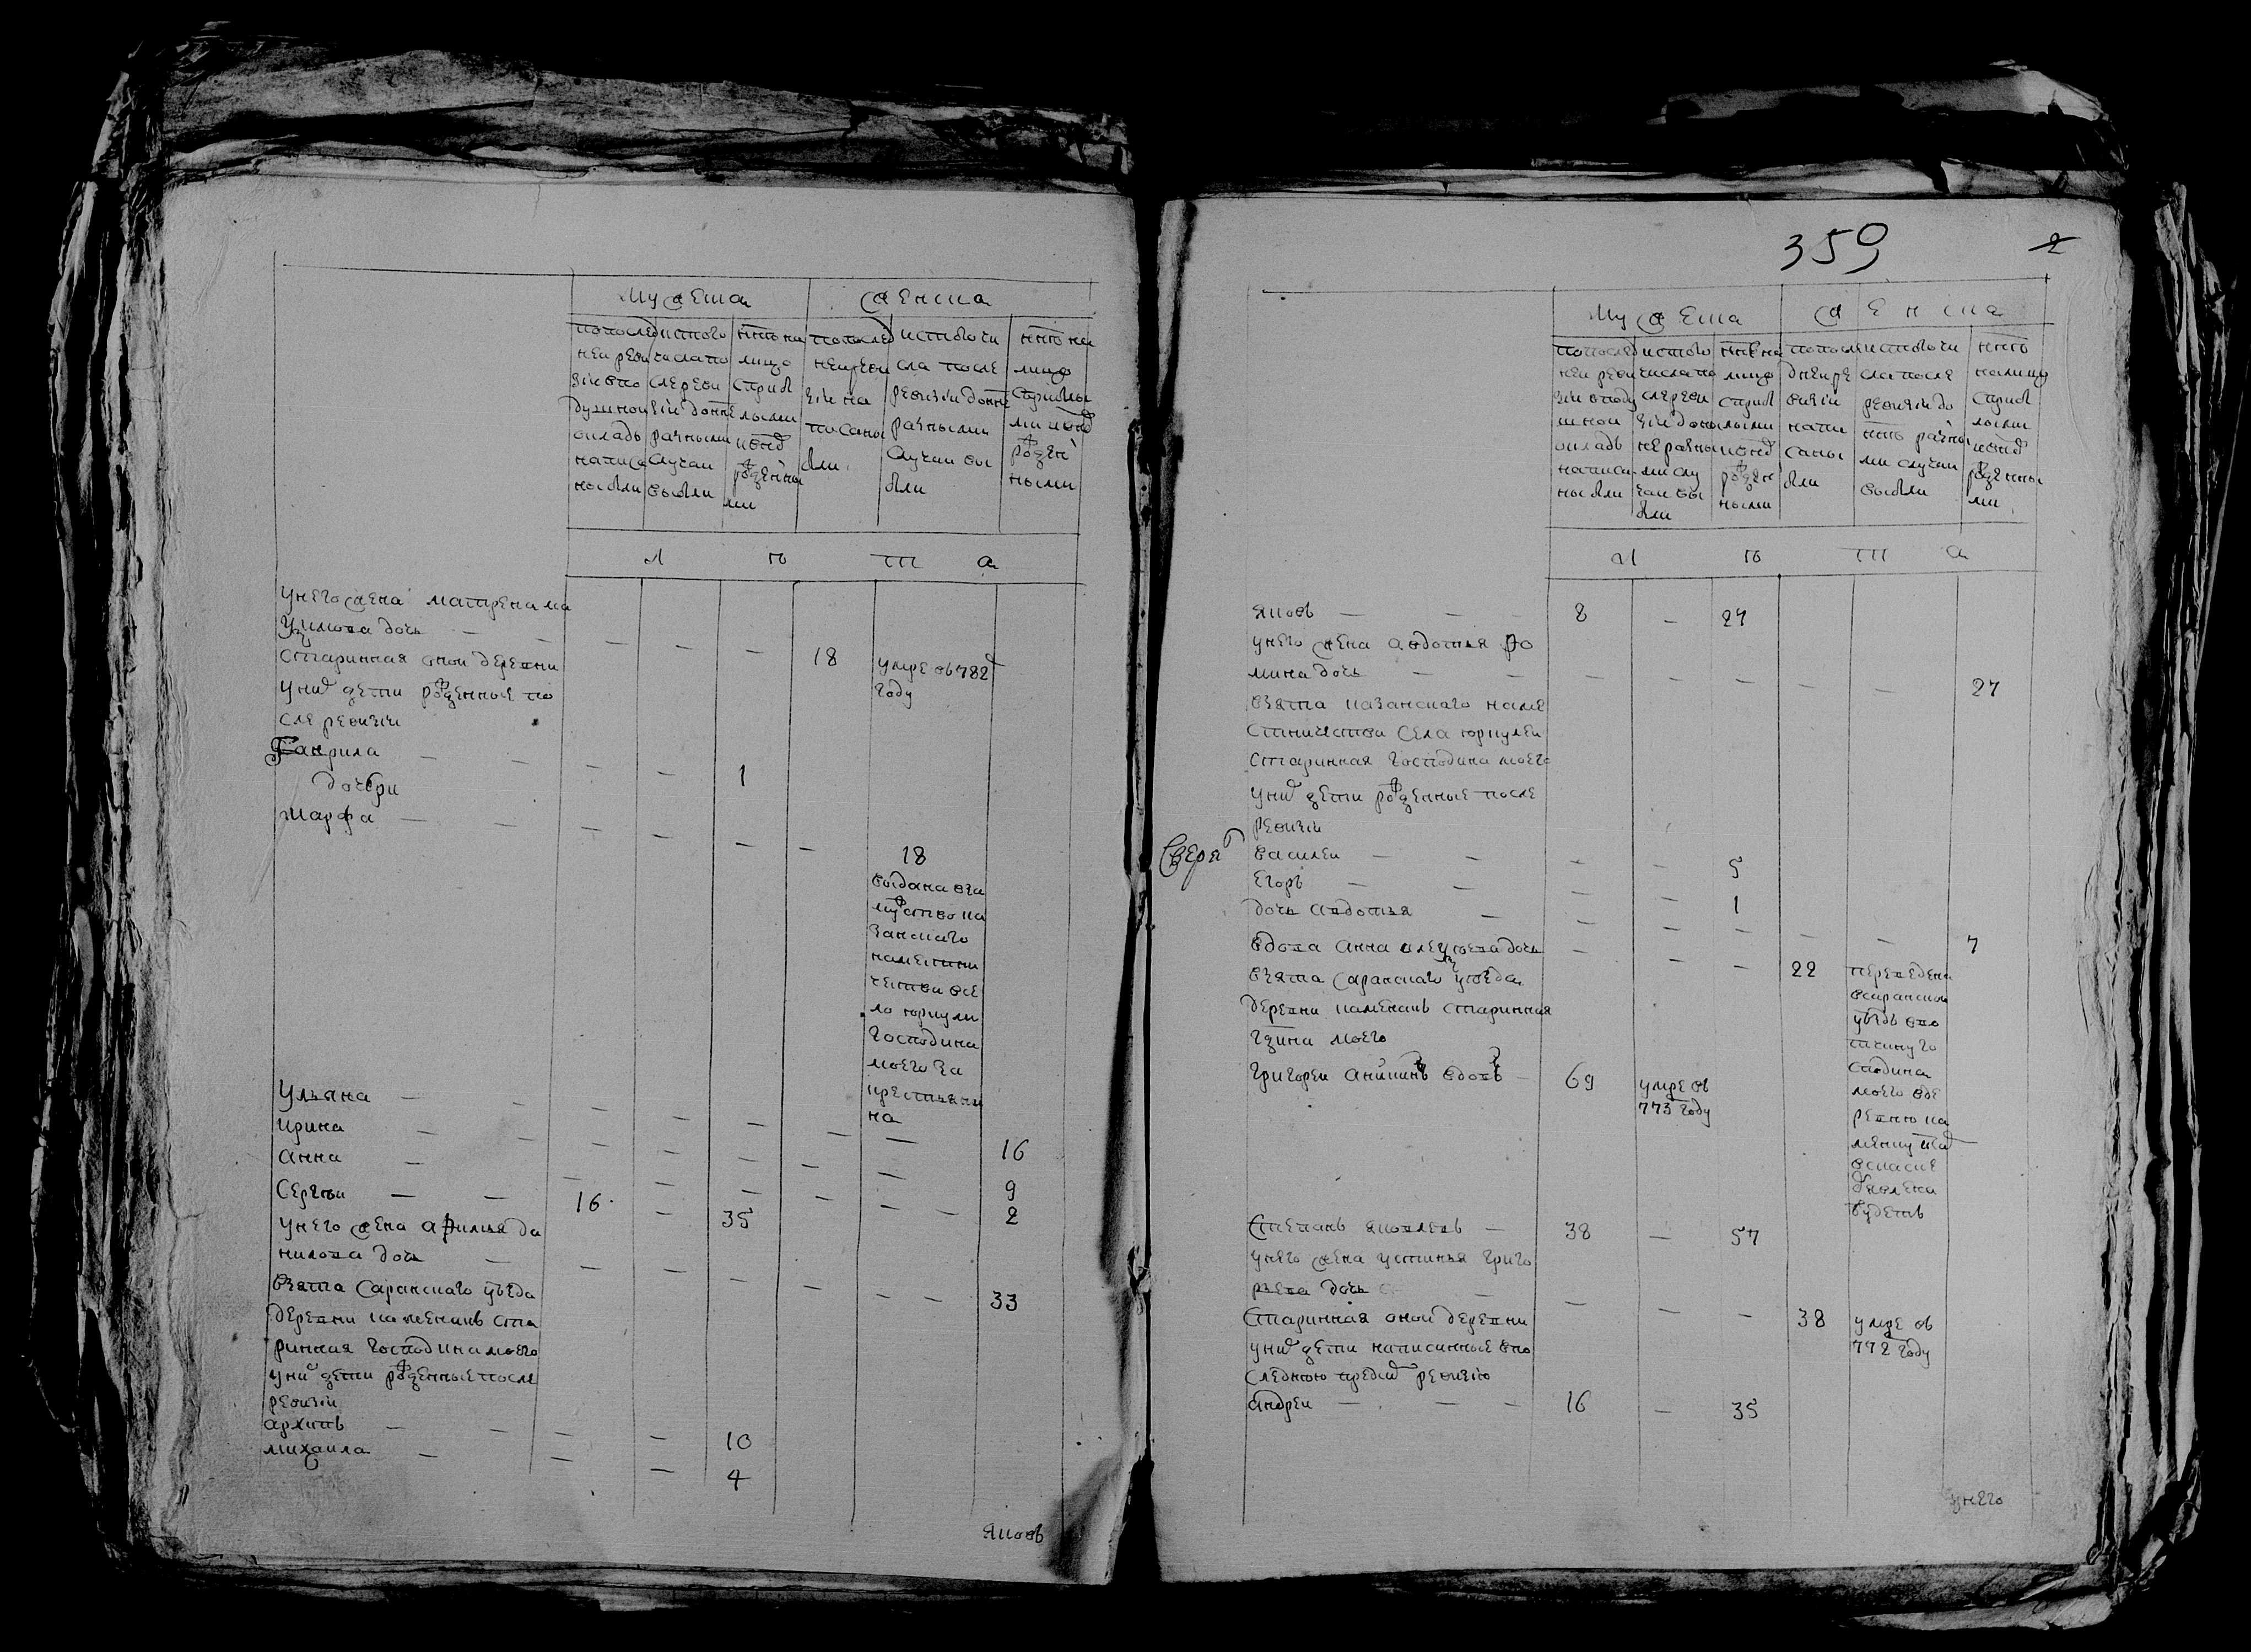 мужеска
женска
попослед
ней реви
зіи впо
душной
окладъ
написа
ны были
истого
числа по
сле реви
зіи доне
разными
случаи
выбыли
нне на
лицо
с прибы
лыми
и внов
рожденны
ми
попослед
ней реви
зіи на
писаны
были
истого чи
сла после
ревизіи доне
разными
случаи вы
были
нне на
лицо
с прибылы
ми и внов
рожден
ными
л ѣ т а
у него жена матрена ма
ѯимова дочь — — — — — 18
старинная оной деревни
умре въ 782
году
у них дети рожденные по
сле ревизіи
Гаврила — — — — 1
дочери
марфа — — — — — — 18
выдана вза
мужство ка
занскаго
намѣстни
чества все
ло юркули
господина
моего за
крестьяни
на
Ульяна — — — — — — — 16
ирина — — — — — — — 9
анна — — — — — — — 2
Сергѣи — — 16 — 35 — —
у него жена афимья да
нилова дочь — — — — — — — 33
взята саранскаго уѣзда
деревни каменакъ ста
ринная господина моего
у них дети рожденные после
ревизіи
архипъ — — — — 10
михаила — — — 4
яковъ
359
2
мужеска
женска
попослед
ней реви
зіи в поду
шной
окладъ
написа
ны были
истого
числа по
сле реви
зіи доне
не разны
ми слу
чаи вы
были
нне на
лицо
с прибы
лыми
и внов
рожден
ными
попосле
дней ре
визіи
напи
саны
были
истого чи
сла после
ревизіи до
нне разны
ми случаи
выбыли
нне
на лицо
с прибы
лыми
и внов
рожденны
ми
л ѣ т а
яковъ — — 8 — 27
у него жена авдотья фо
мина дочь — — — — — — — 27
взята казанскаго наме
стничества села юркулеи
старинная господина моего
у них дети рожденные после
ревизіи
василеи — — — — 5
Егоръ — — — — 1
дочь авдотья — — — — — — 7
вдова анна алеѯѣева дочь — — — 22
взята саранскаго уѣзда
деревни каменакъ старинная
гдина моего
переведена
всаранскои
уѣздъ вво
тчину го
сподина
моего вде
ревню ка
менку та
вскаске
обявлена
будетъ
Григореи аникинъ вдовъ — 69
умре въ
773 году
Степанъ яковлевъ — 38 — 57
у него жена устинья григо
рьева дочь — — — — 38
умре въ
772 году
старинная оной деревни
у них дети написанные впо
следнюю пред сим ревизію
андреи — — — 16 — 35
у него